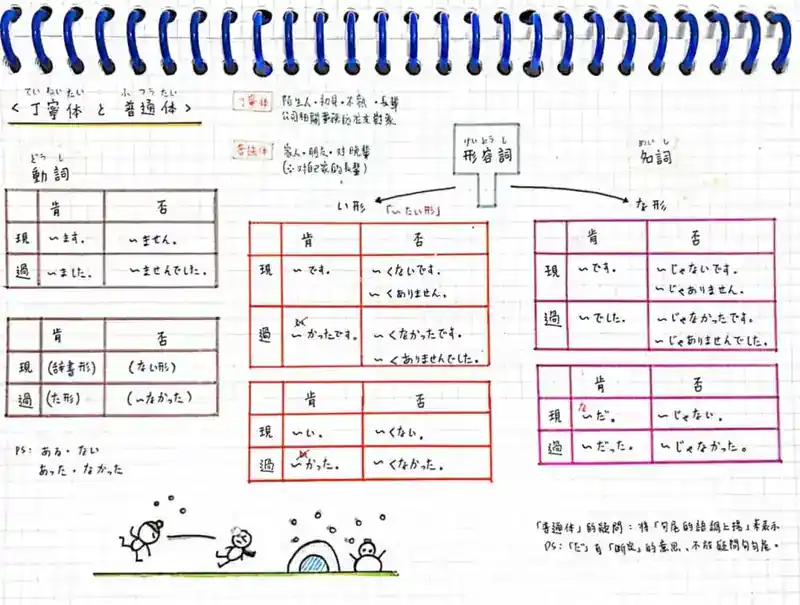 ていねいたい ふつうたい
<丁寧体 と 普通体>
丁寧体 陌生人・初見・不熟・長輩
公司相關事務的往來對象
普通体 家人・朋友・對晚輩
(∵對自己家的長輩)
どうし
動詞
肯 否
現 〜ます。 〜ません。
過 〜ました。 〜ませんでした。
肯 否
現 (辞書形) (ない形)
過 (た形) (〜なかった)
PS: ある・ない
あった・なかった
けいようし
形容詞
い形 「〜たい形」
肯 否
現 〜です。 〜くないです。
〜くありません。
過 〜かったです。 〜くなかったです。
〜くありませんでした。
肯 否
現 〜い。 〜くない。
過 〜かった。 〜くなかった。
めいし
名詞
な形
肯 否
現 〜です。 〜じゃないです。
〜じゃありません。
過 〜でした。 〜じゃなかったです。
〜じゃありませんでした。
肯 否
な
現 〜だ。 〜じゃない。
過 〜だった。 〜じゃなかった。
「普通体」的疑問:將「句尾的語調上揚」來表示
PS:「だ」有「斷定」的意思、不放疑問句句尾。